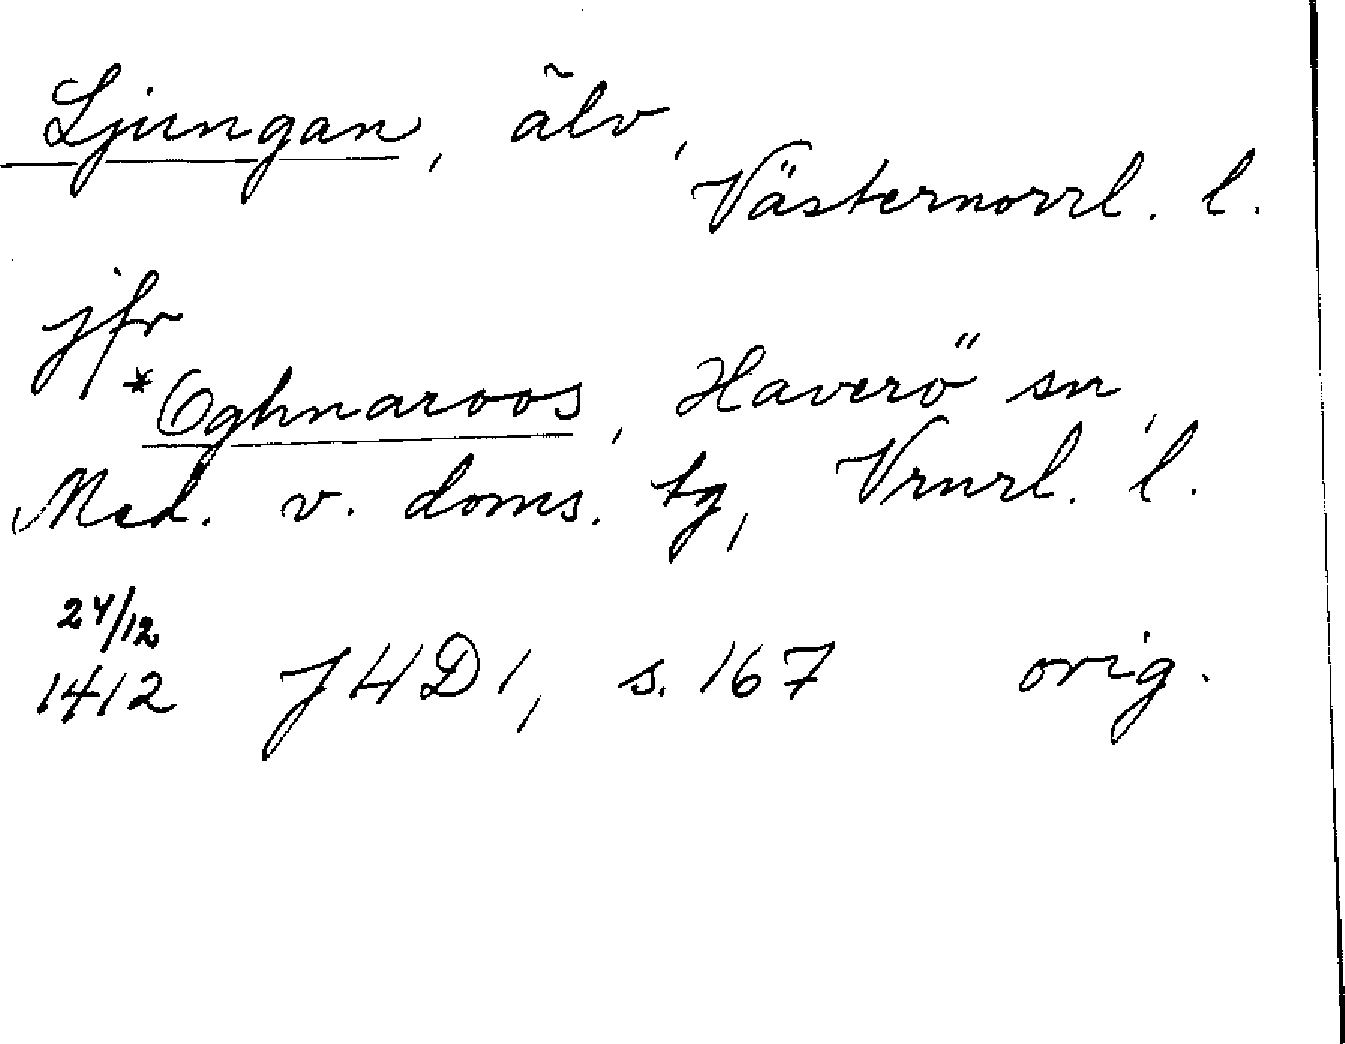 Ljungan, älv,
Västernorrl. l.
jfr
*Oghnaroos, Haverö sn,
Med. v. doms. tg, Vrnrl. l.
24/12
1412 J4D1, s. 167 orig.